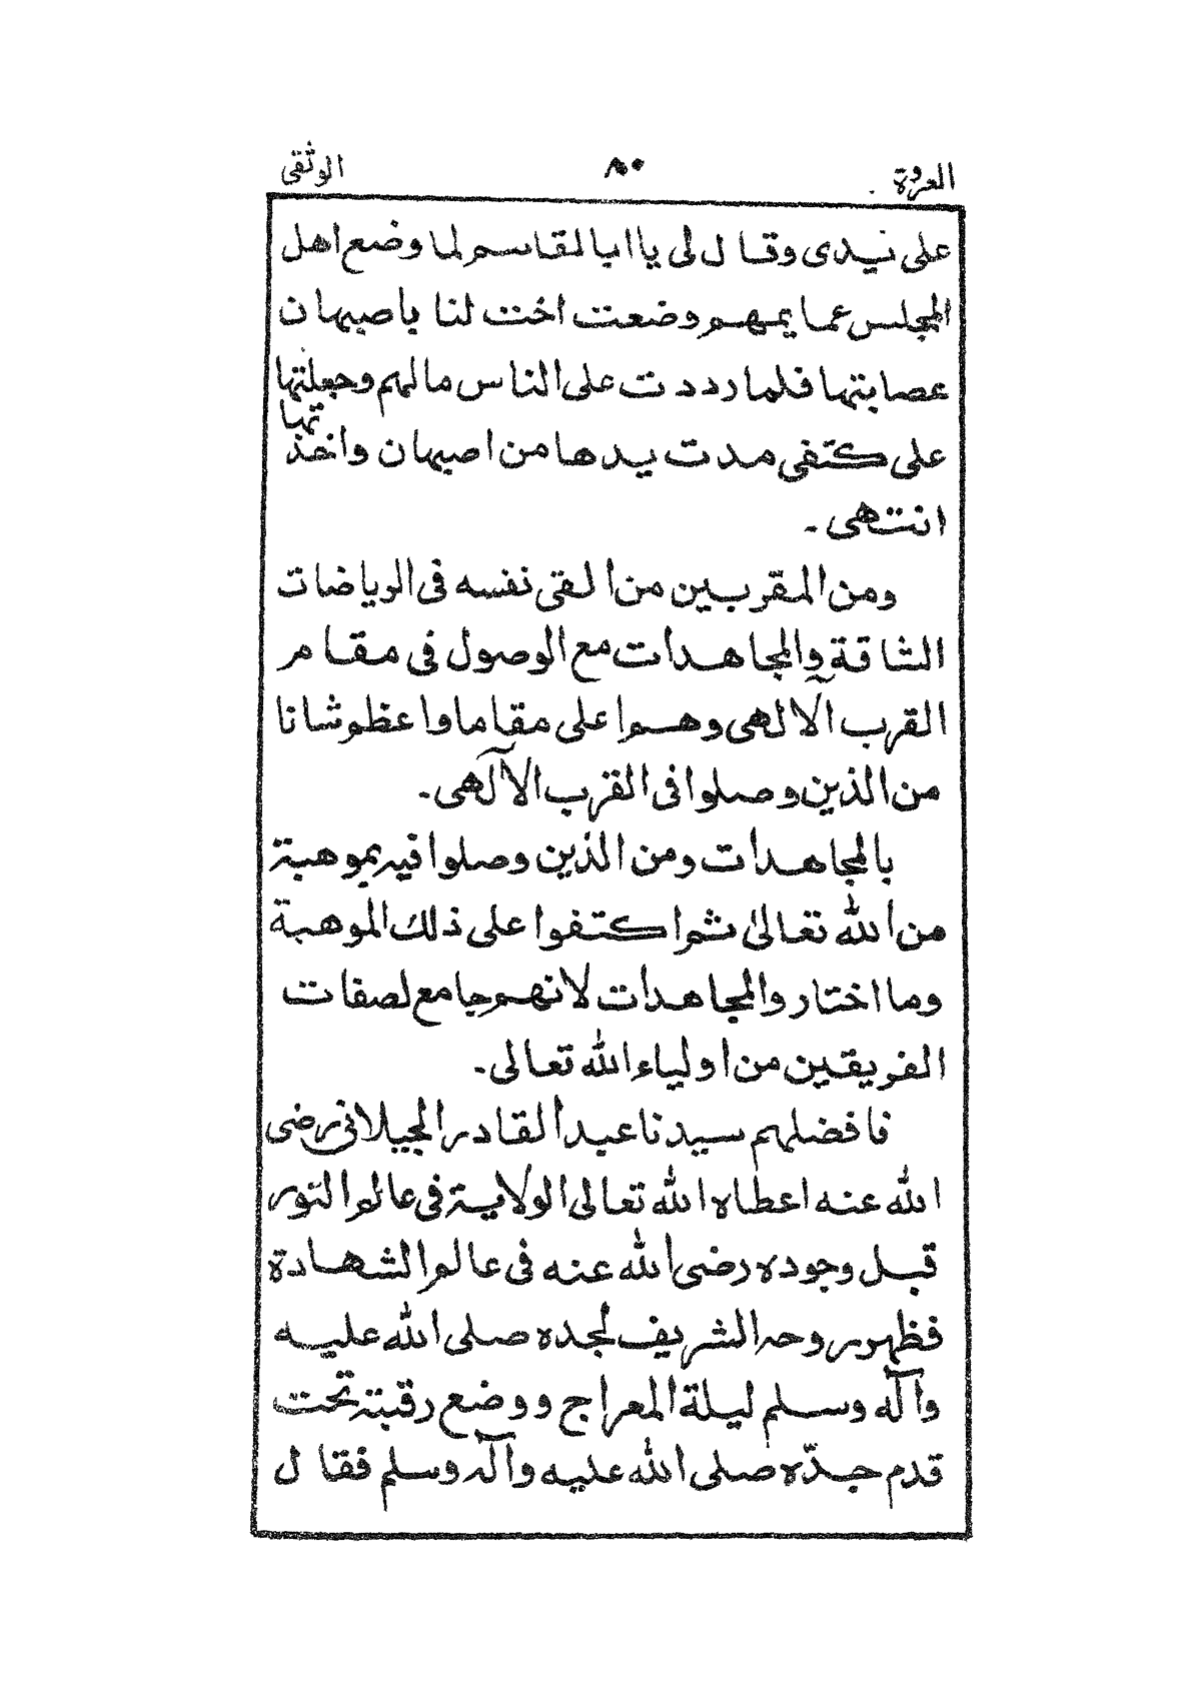 العروة ٨٠ الوثقى
على نيدى وقال لى يا ابا لمقاسم لما وضع اهل
المجلس عمايمهم وضعت اخت لنا باصبهان
عصابتها فلما رددت على الناس مالهم وجعلتها
على كتفى مدت يدها من اصبهان واخذتها
انتهى ۔
ومن المقربين من القى نفسه فى الرياضات
الشاقة والمجاهدات مع الوصول فى مقام
القرب الآلهى وهم اعلى مقاما واعظم شانا
من الذين وصلوا فى القرب الآلهى۔
بالمجاهدات ومن الذين وصلوا فيه بموهبة
من الله تعالىٰ ثم اكتفوا على ذلك الموهبة
وما اختاروا المجاهدات لانهم جامع لصفات
الفريقين من اولياء الله تعالى۔
فافضلهم سيدنا عبد القادر الجيلانى رضى
الله عنه اعطاه الله تعالى الولاية فى عالم النور
قبل وجوده رضى الله عنه فى عالم الشهادة
فظهر روحه الشريف لجده صلى الله عليه
وآله وسلم ليلة المعراج ووضع رقبته تحت
قدم جدّه صلى الله عليه وآله وسلم فقال